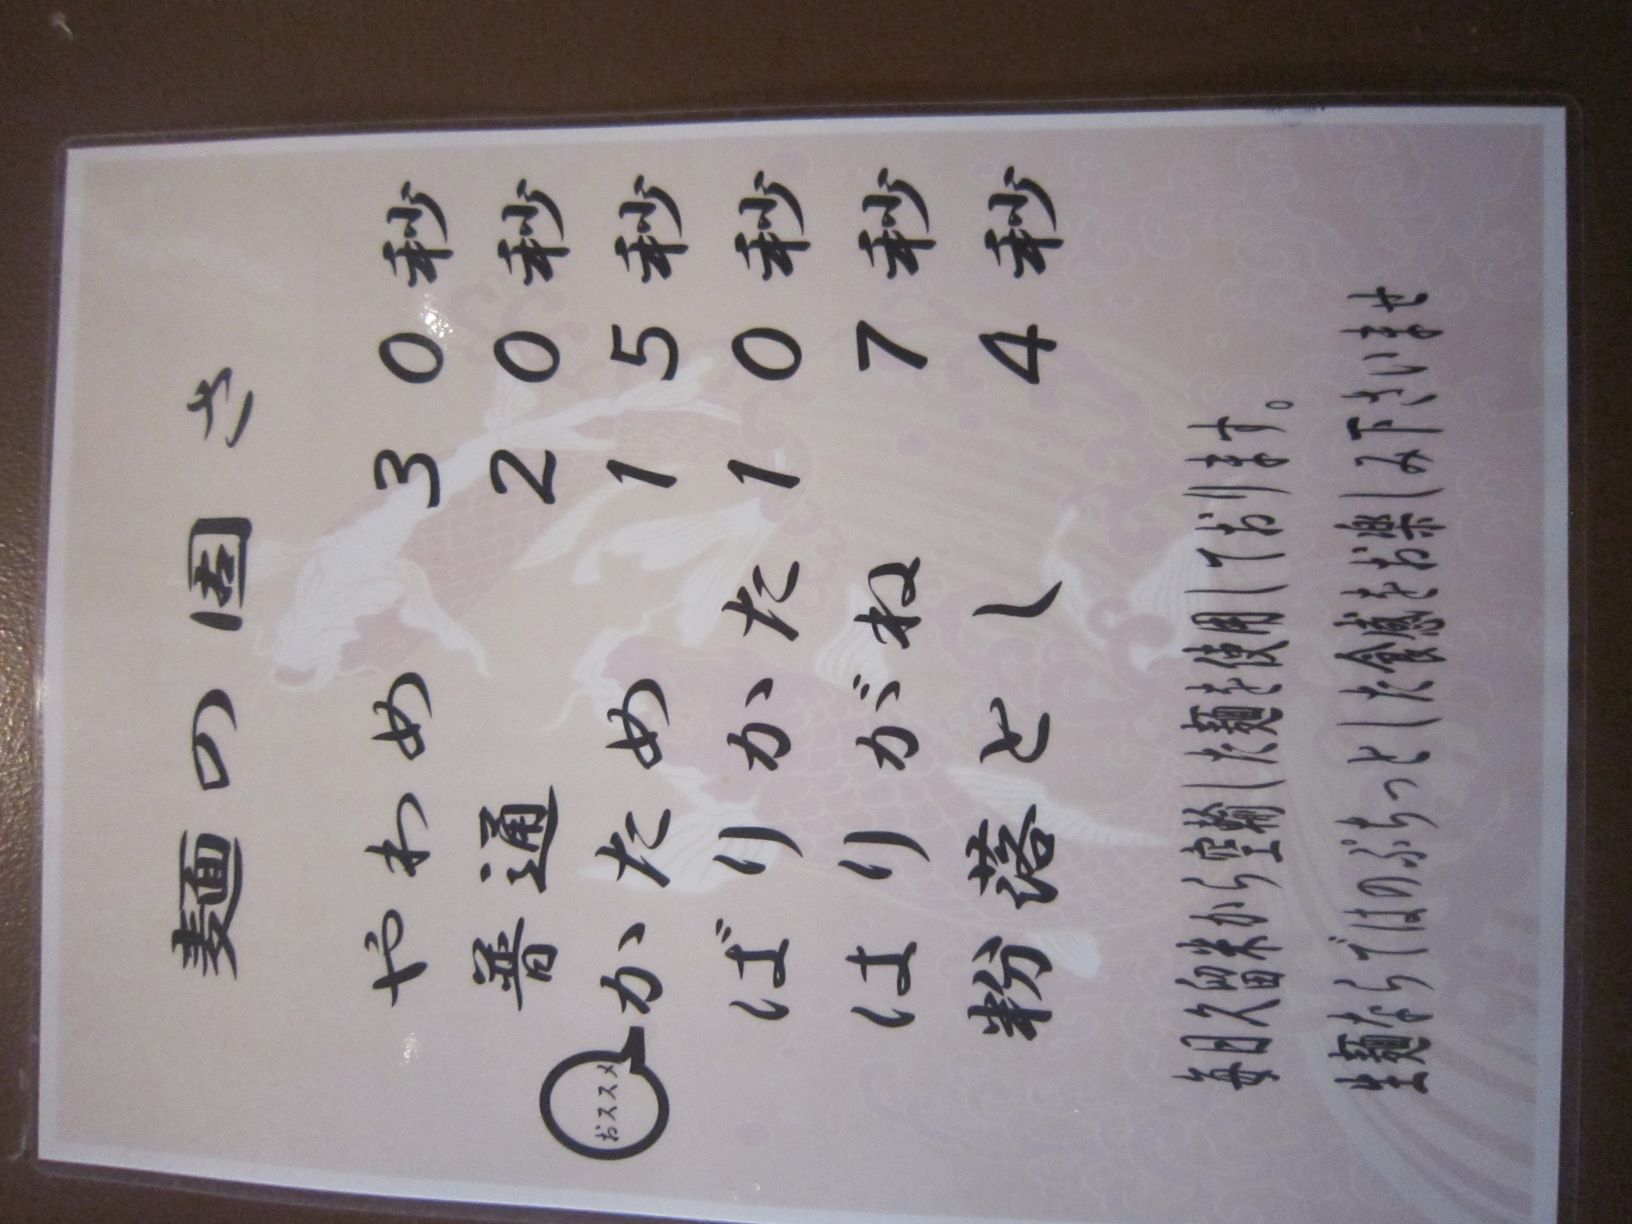 麺の固さ
やわめ 30秒
普通 20秒
おススメ
かため 15秒
ばりかた 10秒
はりがね 7秒
粉落とし 4秒
毎日久留米から空輸した麺を使用しております。
生麺ならではのぷちっとした食感をお楽しみ下さいませ